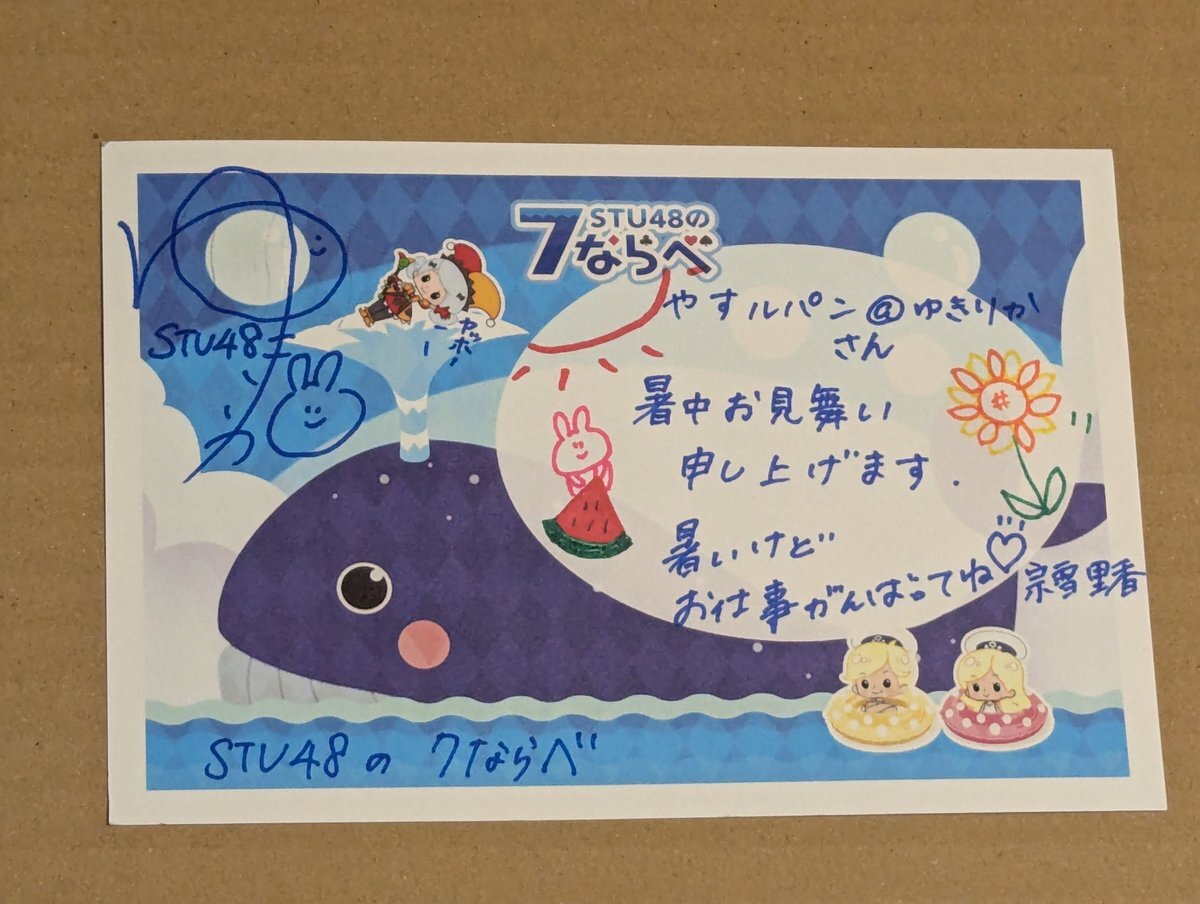 STU48の
7ならべ
やすルパン@ゆきりか
さん
暑中お見舞い
申し上げます.
暑いけど
お仕事がんばってね♡
宗雪里香
STU48
カッポ
STU48の 7ならべ